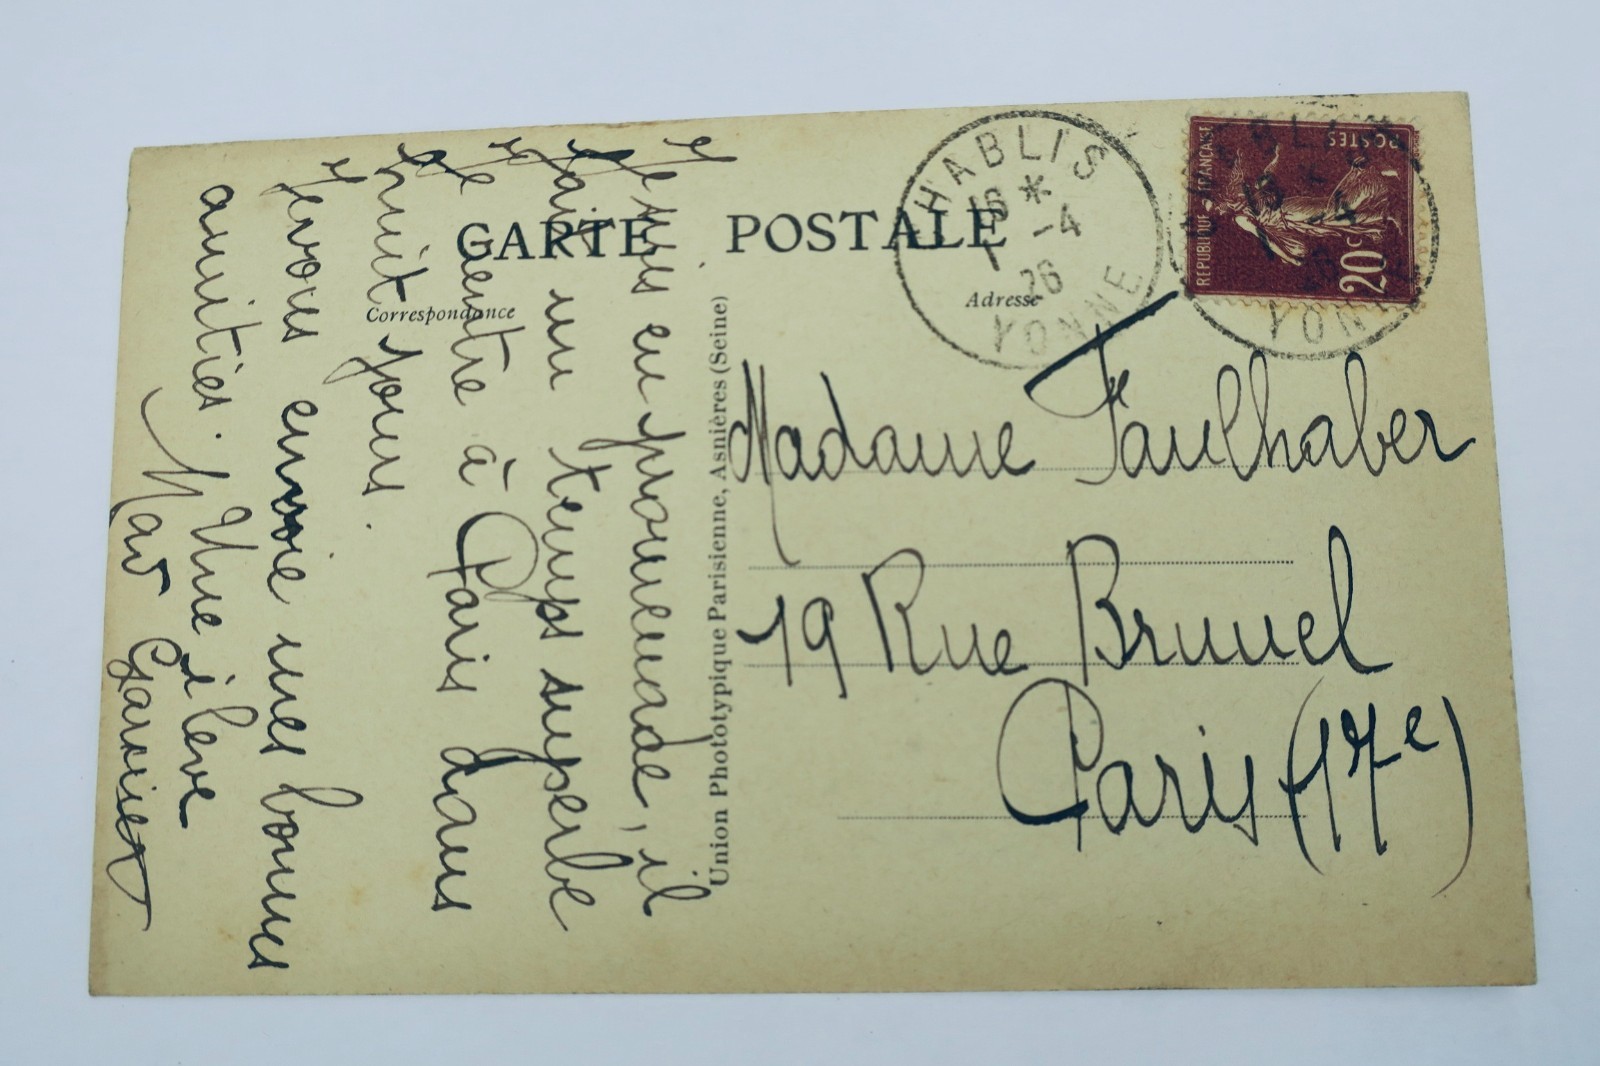 CARTE POSTALE
Correspondance
Adresse
Je suis en promenade, il
fait un temps superbe
Je rentre à Paris dans
huit jours.
Je vous envoie mes bonnes
amitiés. Une élève
Mad Garnier
Union Phototypique Parisienne, Asnières (Seine)
CHABLIS
15 *
1 -4
26
YONNE
REPUBLIQUE FRANÇAISE
POSTES
20c
Madame Faulhaber
19 Rue Brunel
Paris (17e)